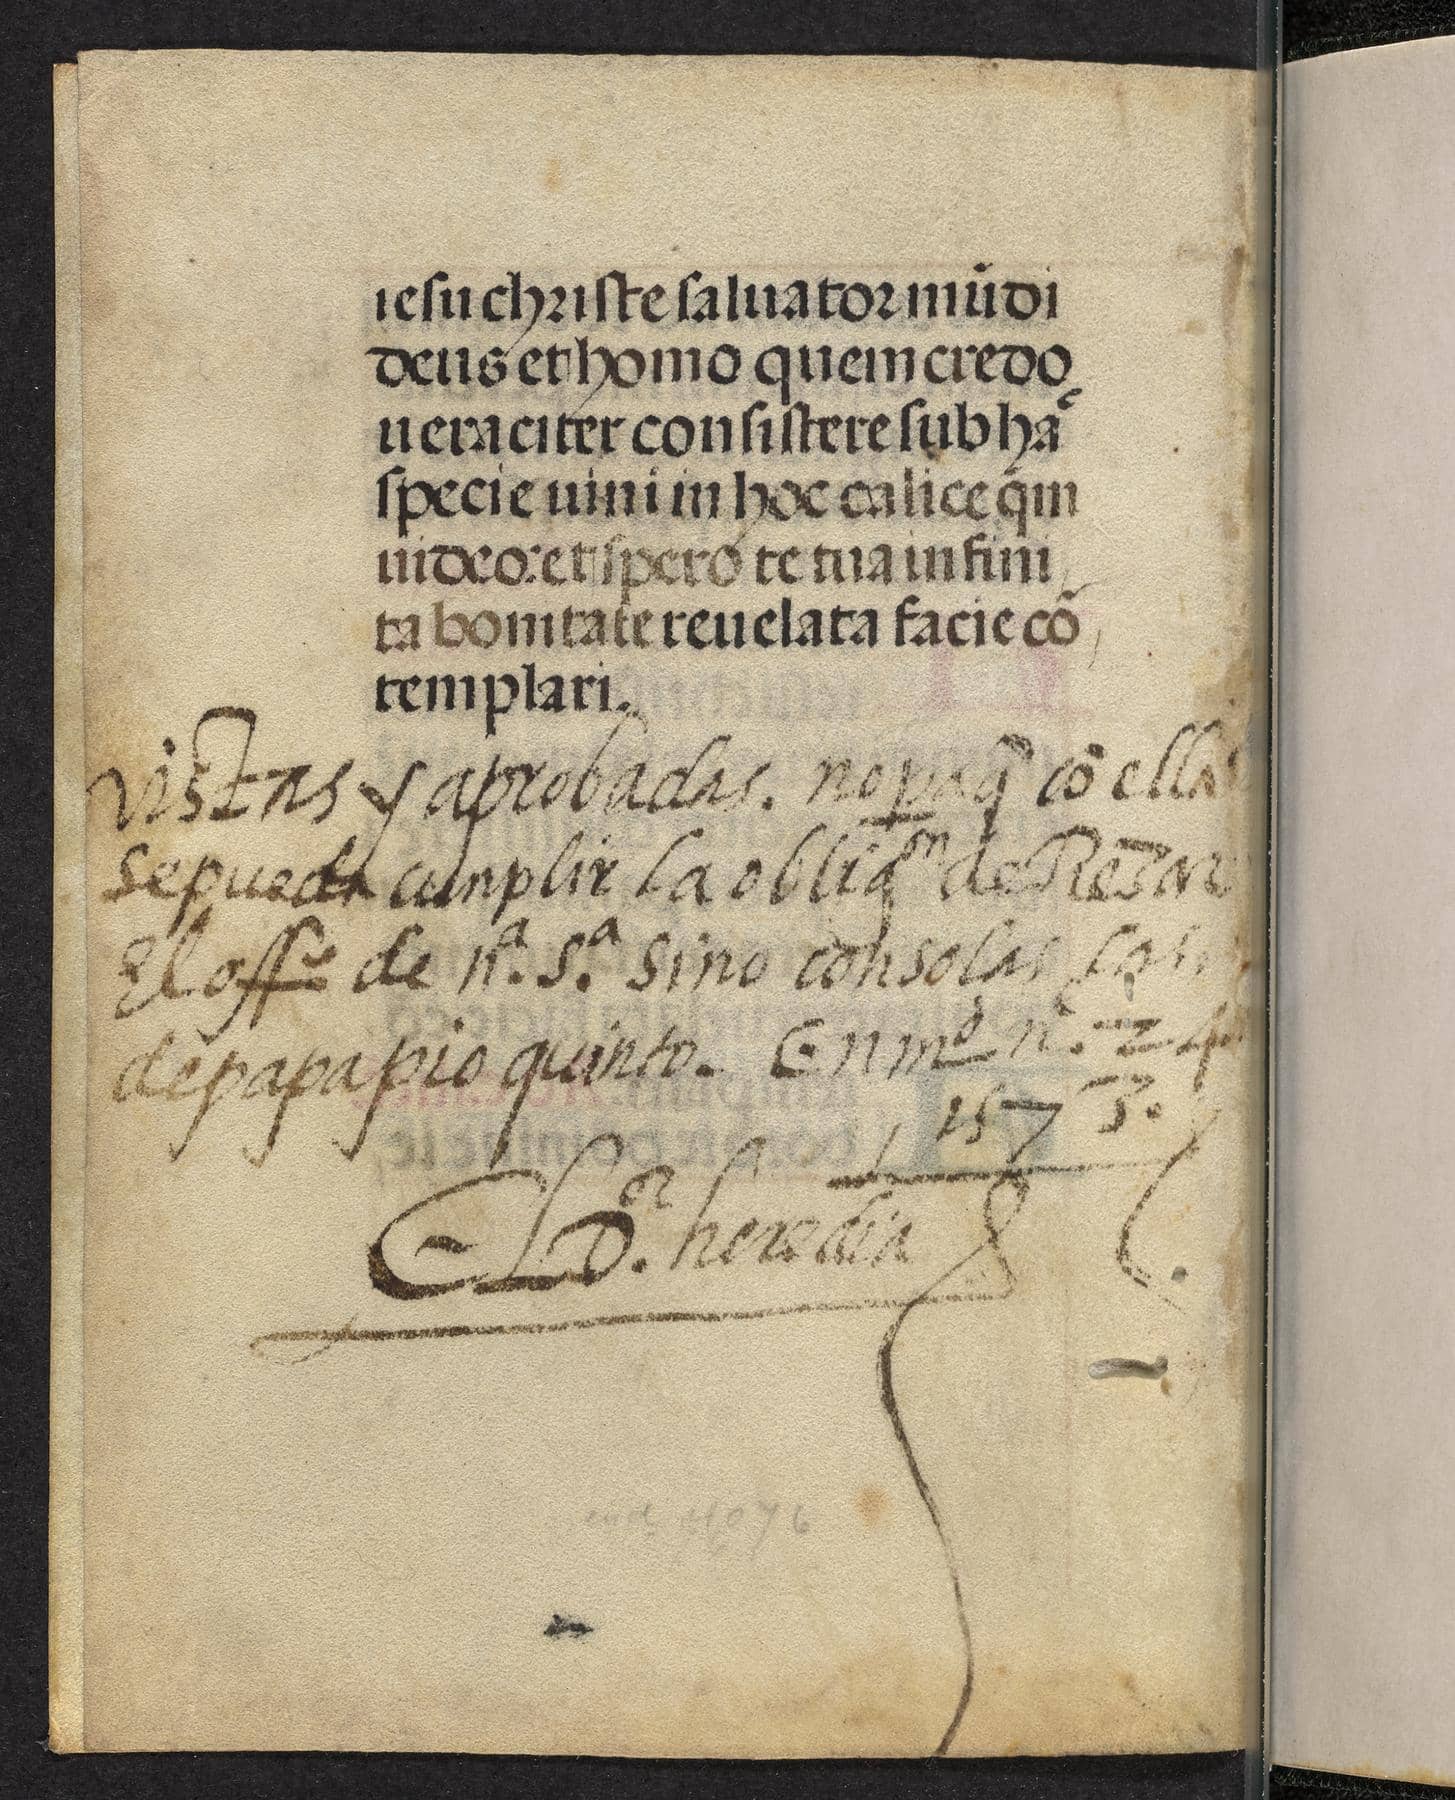 iesu christe saluator mūdi
deus et homo quem credo
ueraciter consistere sub hāc
specie uini in hoc calice q̄m
uideo: et spero te tua infini
ta bonitate reuelata facie cō
templari.
vistas y aprobadas. no paq̄ cō ellas
se pueda cumplir la obligon de Rezar
El offº de nª. sª. sino con solas las
de papa pio quinto. En mº nº. 24
1573.
El Dor. heredia
4076